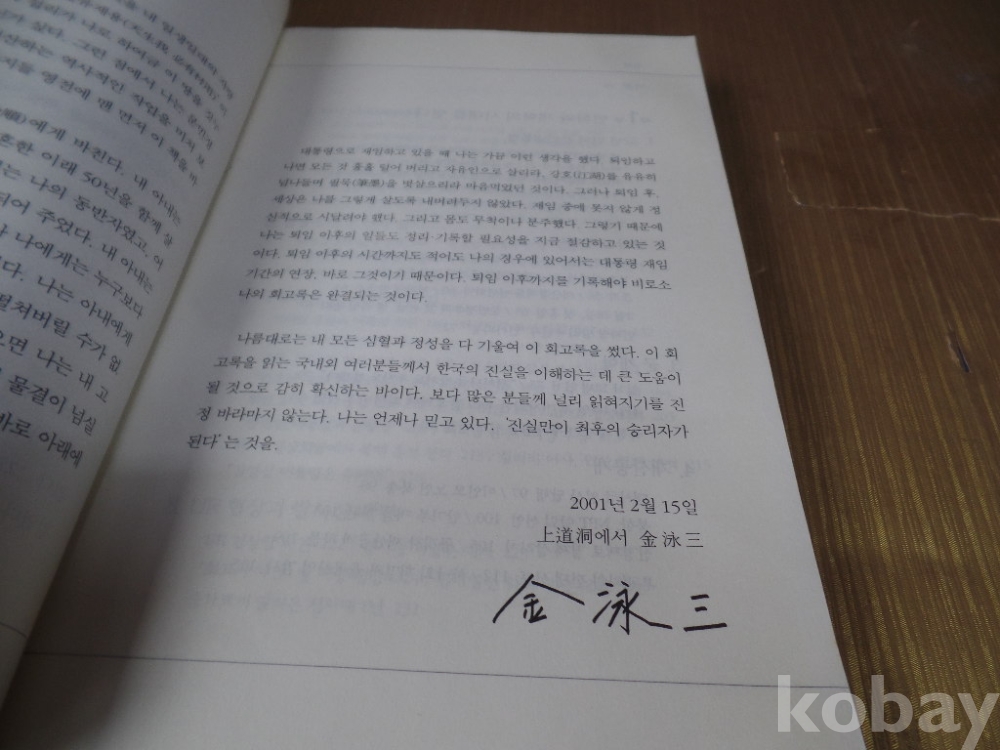 에게 바친다. 내 아내는
혼한 이래 50년을 함께 살
는 나의 동반자였고, 어
되어 주었다. 내 아내는
나에게는 누구보다
다. 나는 아내에게
펼쳐버릴 수가 없
으면 나는 내 고
물결이 넘실
바로 아래에
대통령으로 재임하고 있을 때 나는 가끔 이런 생각을 했다. 퇴임하고
나면 모든 것 훌훌 털어 버리고 자유인으로 살리라. 강호(江湖)를 유유히
넘나들며 필묵(筆墨)을 벗삼으리라 마음먹었던 것이다. 그러나 퇴임 후,
세상은 나를 그렇게 살도록 내버려두지 않았다. 재임 중에 못지 않게 정
신적으로 시달려야 했다. 그리고 몸도 무척이나 분주했다. 그렇기 때문에
나는 퇴임 이후의 일들도 정리·기록할 필요성을 지금 절감하고 있는 것
이다. 퇴임 이후의 시간까지도 적어도 나의 경우에 있어서는 대통령 재임
기간의 연장, 바로 그것이기 때문이다. 퇴임 이후까지를 기록해야 비로소
나의 회고록은 완결되는 것이다.
나름대로는 내 모든 심혈과 정성을 다 기울여 이 회고록을 썼다. 이 회
고록을 읽는 국내외 여러분들께서 한국의 진실을 이해하는 데 큰 도움이
될 것으로 감히 확신하는 바이다. 보다 많은 분들께 널리 읽혀지기를 진
정 바라마지 않는다. 나는 언제나 믿고 있다. ‘진실만이 최후의 승리자가
된다’는 것을.
2001년 2월 15일
上道洞에서 金泳三
金泳三
kobay